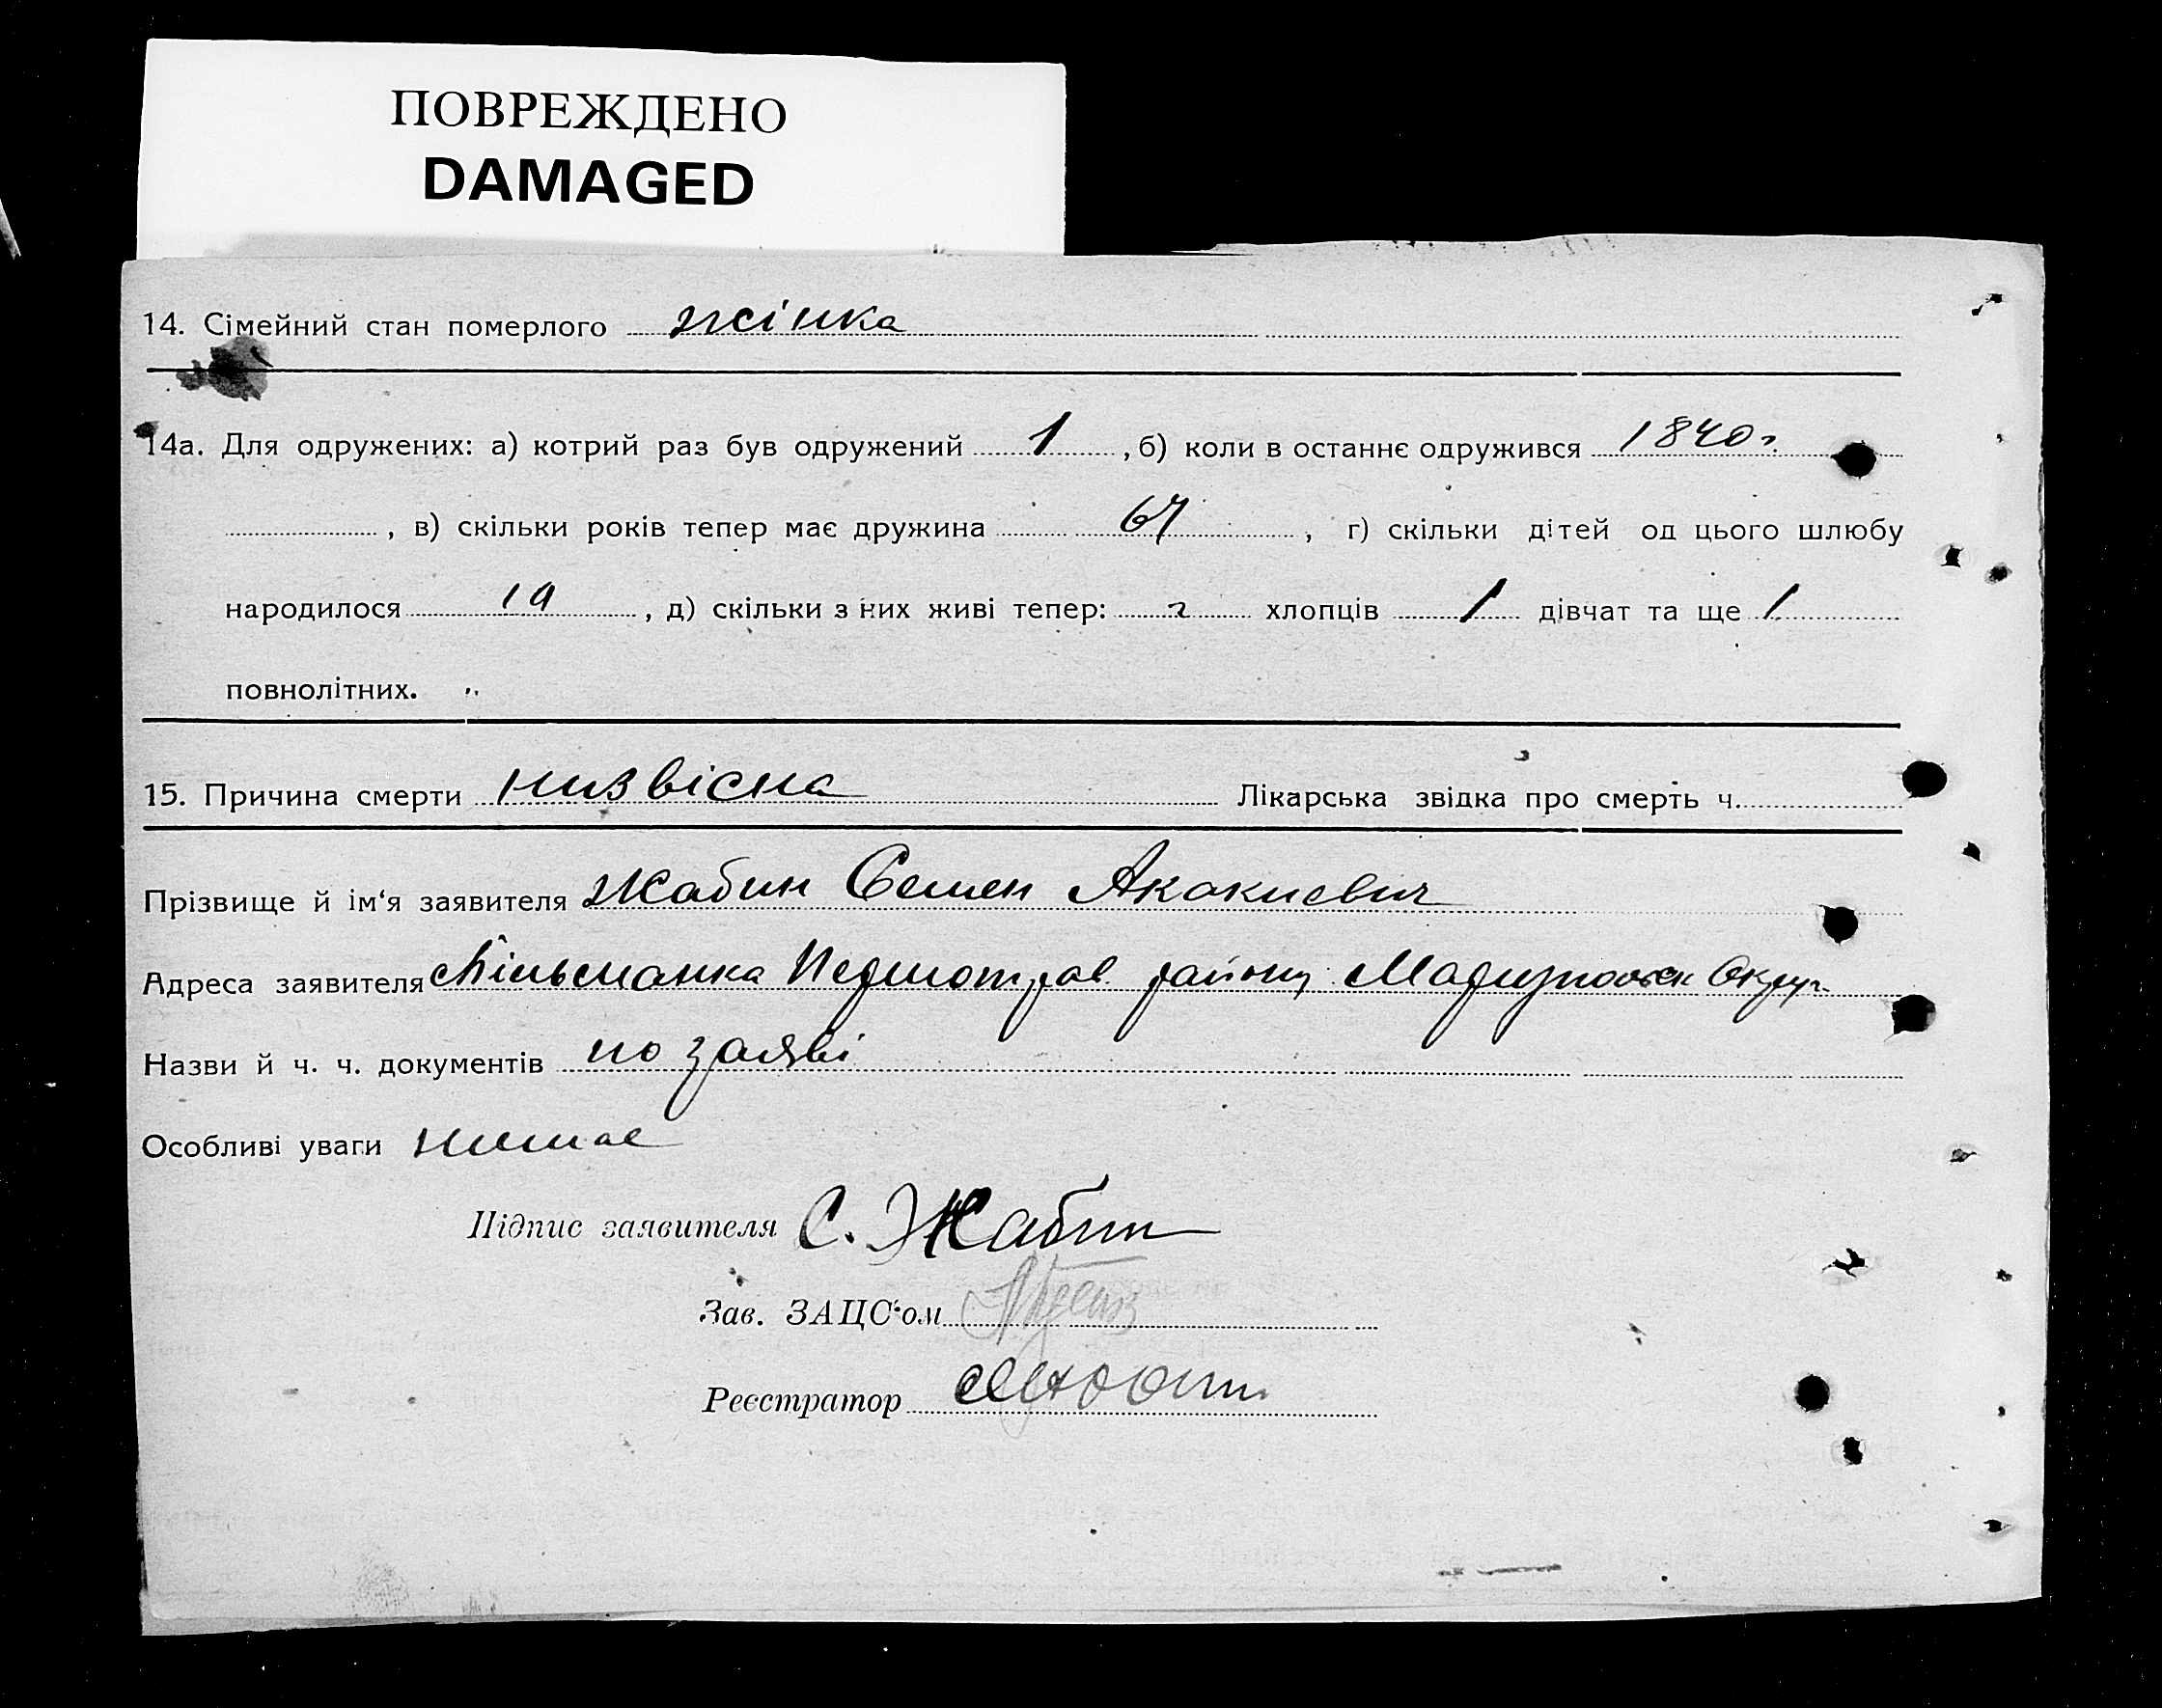 ПОВРЕЖДЕНО
DAMAGED
14. Сімейний стан померлого жінка
14а. Для одружених: а) котрий раз був одружений 1, б) коли в останнє одружився 1840 г.
, в) скільки років тепер має дружина 67, г) скільки дітей од цього шлюбу
народилося 19, д) скільки з них живі тепер: 2 хлопців 1 дівчат та ще 1
повнолітних.
15. Причина смерти низвісна Лікарська звідка про смерть ч.
Прізвище й ім'я заявителя Жабин Семен Акакиевич
Адреса заявителя району Округ
Назви й ч. ч. документів по заяві
Особливі уваги нимае
Підпис заявителя С. Жабин
Зав. ЗАЦС'ом
Реєстратор